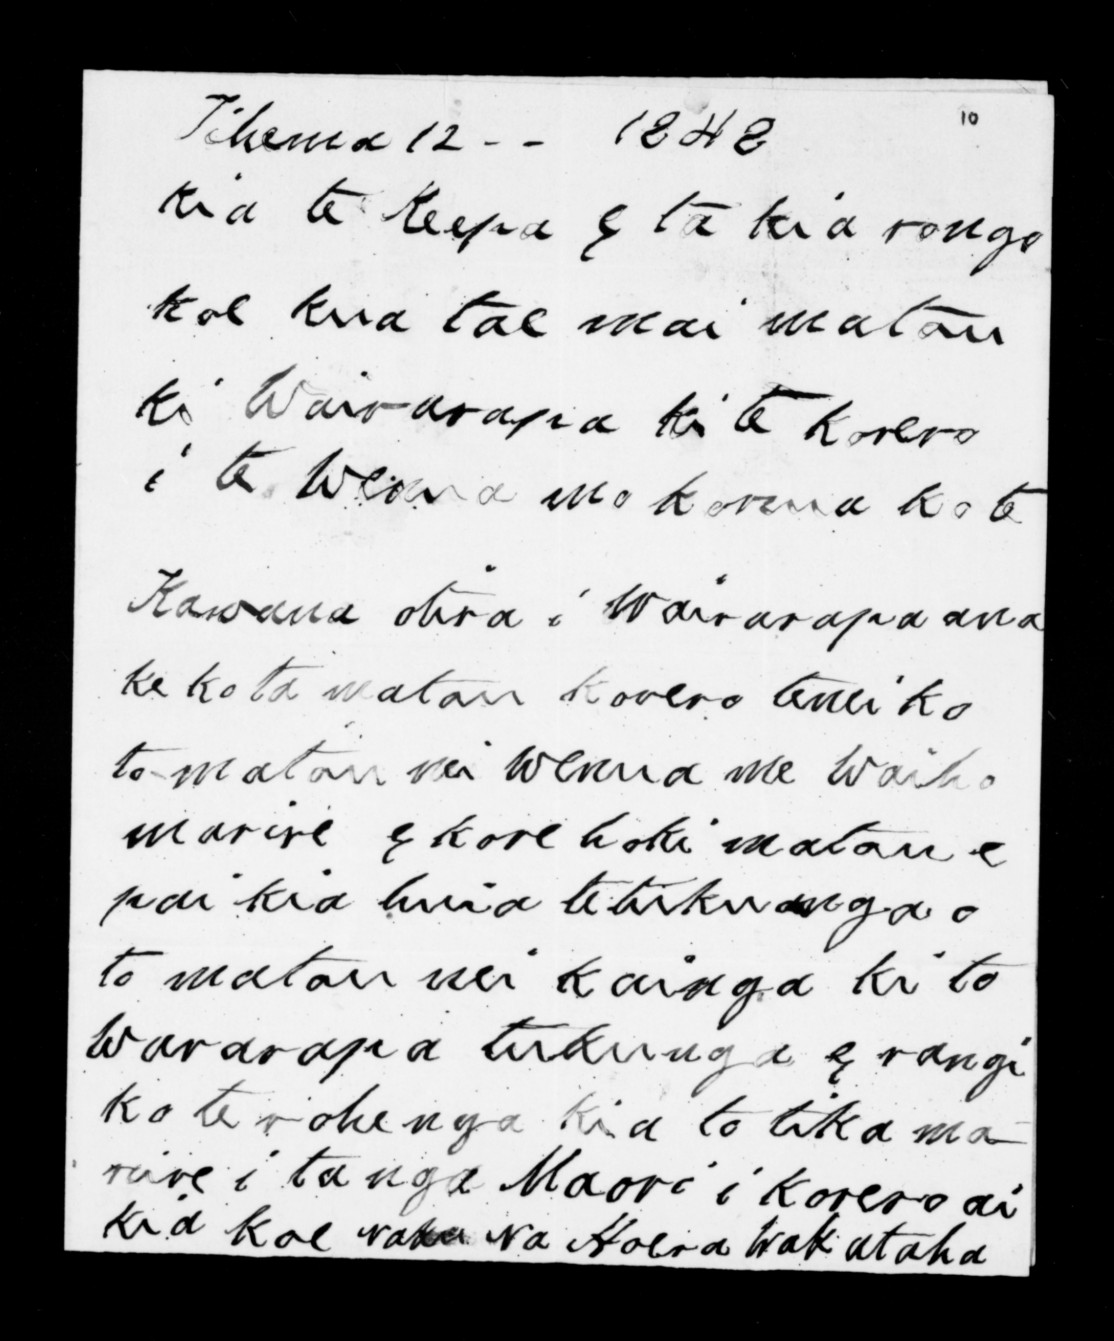 10
Tihema 12 - - 1848
kia te Keepa e ta kia rongo
koe kua tae mai matou
ki Wairarapa ki te korero
i te Wenua mo korua ko te
Kawana otira i Wairarapa ana
ke ko ta matou korero tenei ko
to matou nei Wenua me Waiho
marire e kore hoki matou e
pai kia huia te tukuanga o
to matou nei kainga ki to
Wararapa tukunga e rangi
ko te rohenga kia to tika ma
rire i ta nga Maori i korero ai
kia koe naku Na Hoera Wakataha